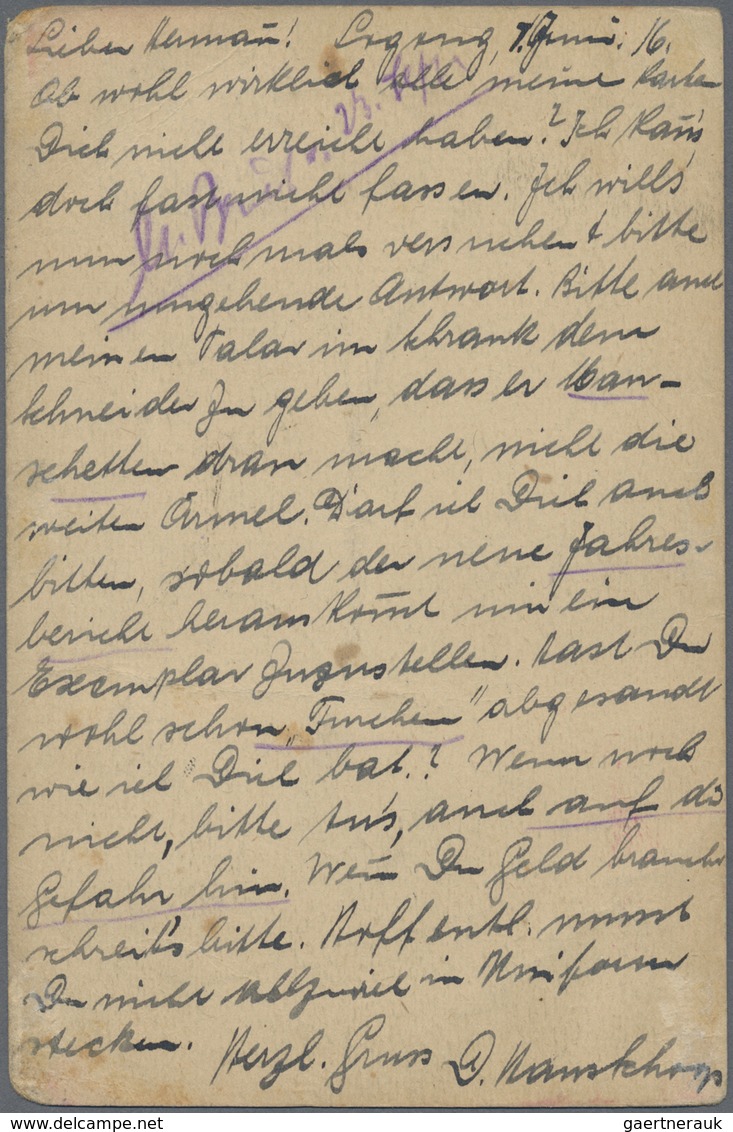 Lieber Hermañ! Logong, 7. Juni. 16.
Ob wohl wirklich alle meine Karten
Dich nicht erreicht haben? Ich kañ's
doch fast nicht fassen. Ich will's
nun nochmals versuchen & bitte
um umgehende Antwort. Bitte auch
meinen Talar im Schrank dem
Schneider zu geben, dass er Man-
schetten dran macht, nicht die
weiten Ärmel. Darf ich Dich auch
bitten, sobald der neue Jahres-
bericht herauskom̄t mir ein
Exemplar zuzustellen. Hast Du
wohl schon „Furchen" abgesandt
wie ich Dich bat.? Wenn noch
nicht, bitte tu's, auch auf die
Gefahr hin. Weñ Du Geld brauchst
schreib's bitte. Hoffentl. musst
Du nicht allzuviel in Uniform
stecken. Herzl. Gruss D.
gaertnerauk